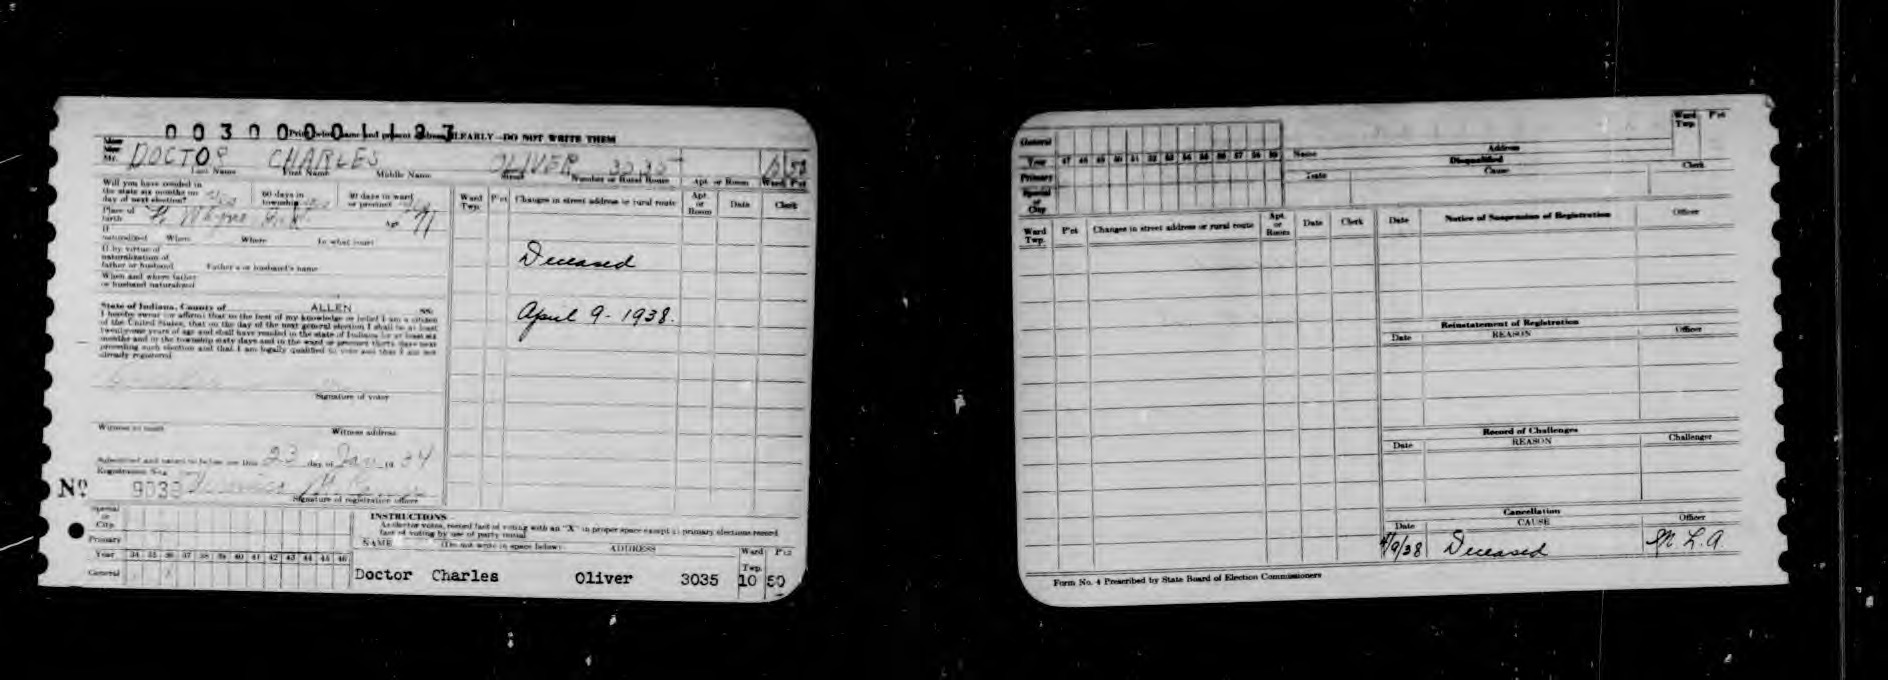 00300001187
CLEARLY—DO NOT WRITE THEM
Mr. DOCTOR CHARLES OLIVER 3035 10 50
Last Name First Name Middle Name Street Number or Rural Route Apt. or Room Ward P'ct
Will you have resided in
the state six months on
day of next election? Yes
60 days in
township yes
30 days in ward
or precinct
Place of
birth Ft Wayne Ind. Age 71
If
naturalized When Where In what court
If by virtue of
naturalization of
father or husband Father's or husband's name
When and where father
or husband naturalized
State of Indiana, County of ALLEN SS:
I hereby swear (or affirm) that to the best of my knowledge or belief I am a citizen
of the United States, that on the day of the next general election I shall be at least
twenty-one years of age and shall have resided in the state of Indiana for at least six
months and in the township sixty days and in the ward or precinct thirty days next
preceding such election and that I am legally qualified to vote and that I am not
already registered
Signature of voter
Witness to mark Witness address
Subscribed and sworn to before me this 23 day of Jan 19 34
Registration No.
No 9039
Signature of registration officer
Ward
Twp. P'ct Changes in street address or rural route Apt.
or
Room Date Clerk
Deceased
April 9 - 1938.
Special
or
City
Primary
Year 34 35 36 37 38 39 40 41 42 43 44 45 46
General
INSTRUCTIONS
As elector votes, record fact of voting with an "X" in proper space except in primary elections record
fact of voting by use of party initial
NAME (Do not write in space below) ADDRESS Ward
Twp. P'ct
Doctor Charles Oliver 3035 10 50
General
Year 47 48 49 50 51 52 53 54 55 56 57 58 59
Primary
Special
or
City
Name Address Ward
Twp. P'ct
Disqualified
Date Cause Clerk
Ward
Twp. P'ct Changes in street address or rural route Apt.
or
Room Date Clerk
Date Notice of Suspension of Registration Officer
Reinstatement of Registration
Date REASON Officer
Record of Challenges
Date REASON Challenger
Cancellation
Date CAUSE Officer
4/9/38 Deceased M. L. A.
Form No. 4 Prescribed by State Board of Election Commissioners